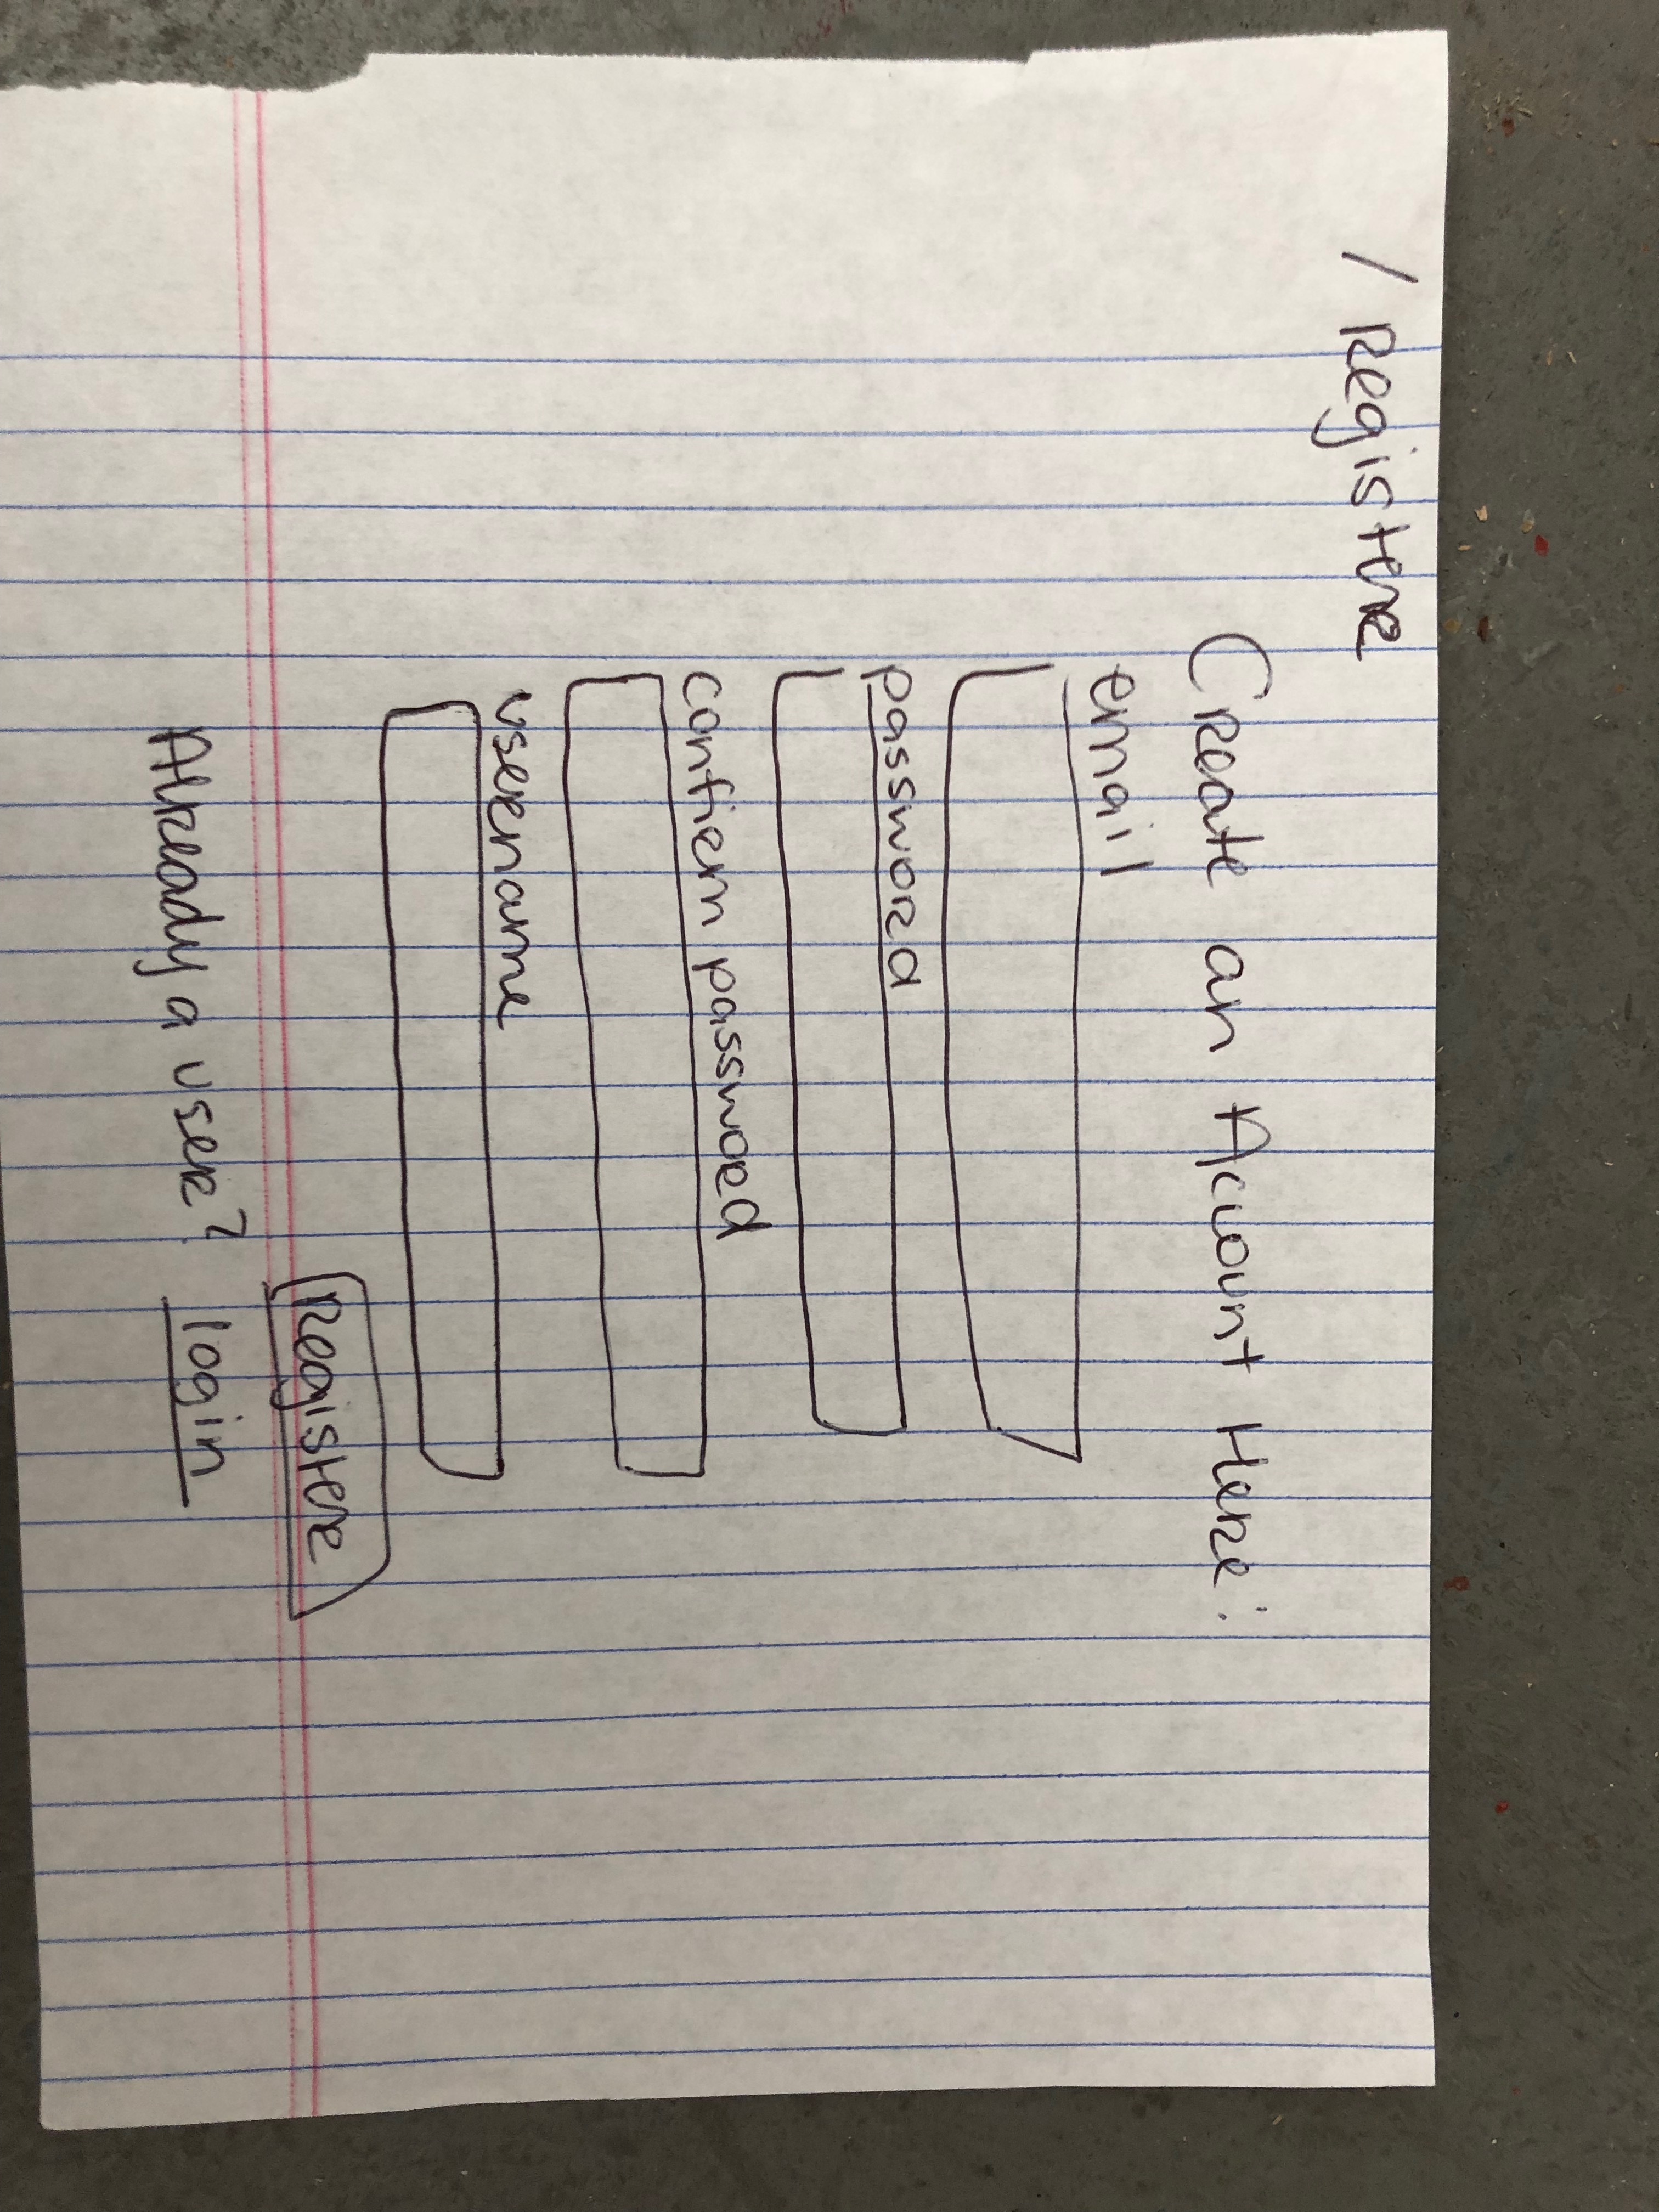 / Register
Create an Account Here:
email
password
confirm password
username
Register
Already a user? login